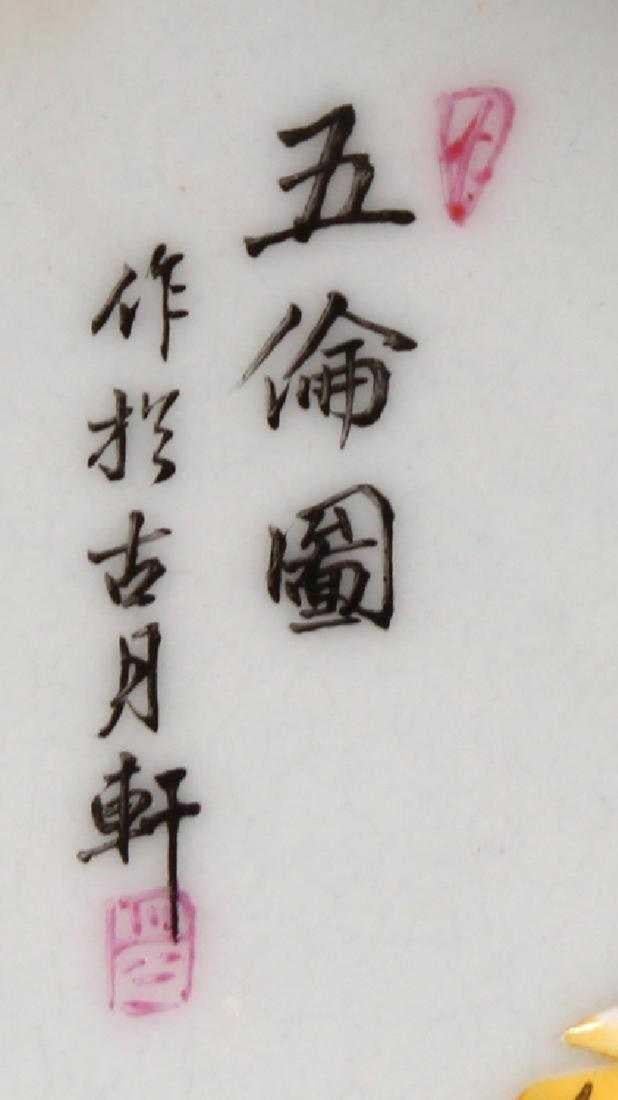 五倫圖
作於古月軒